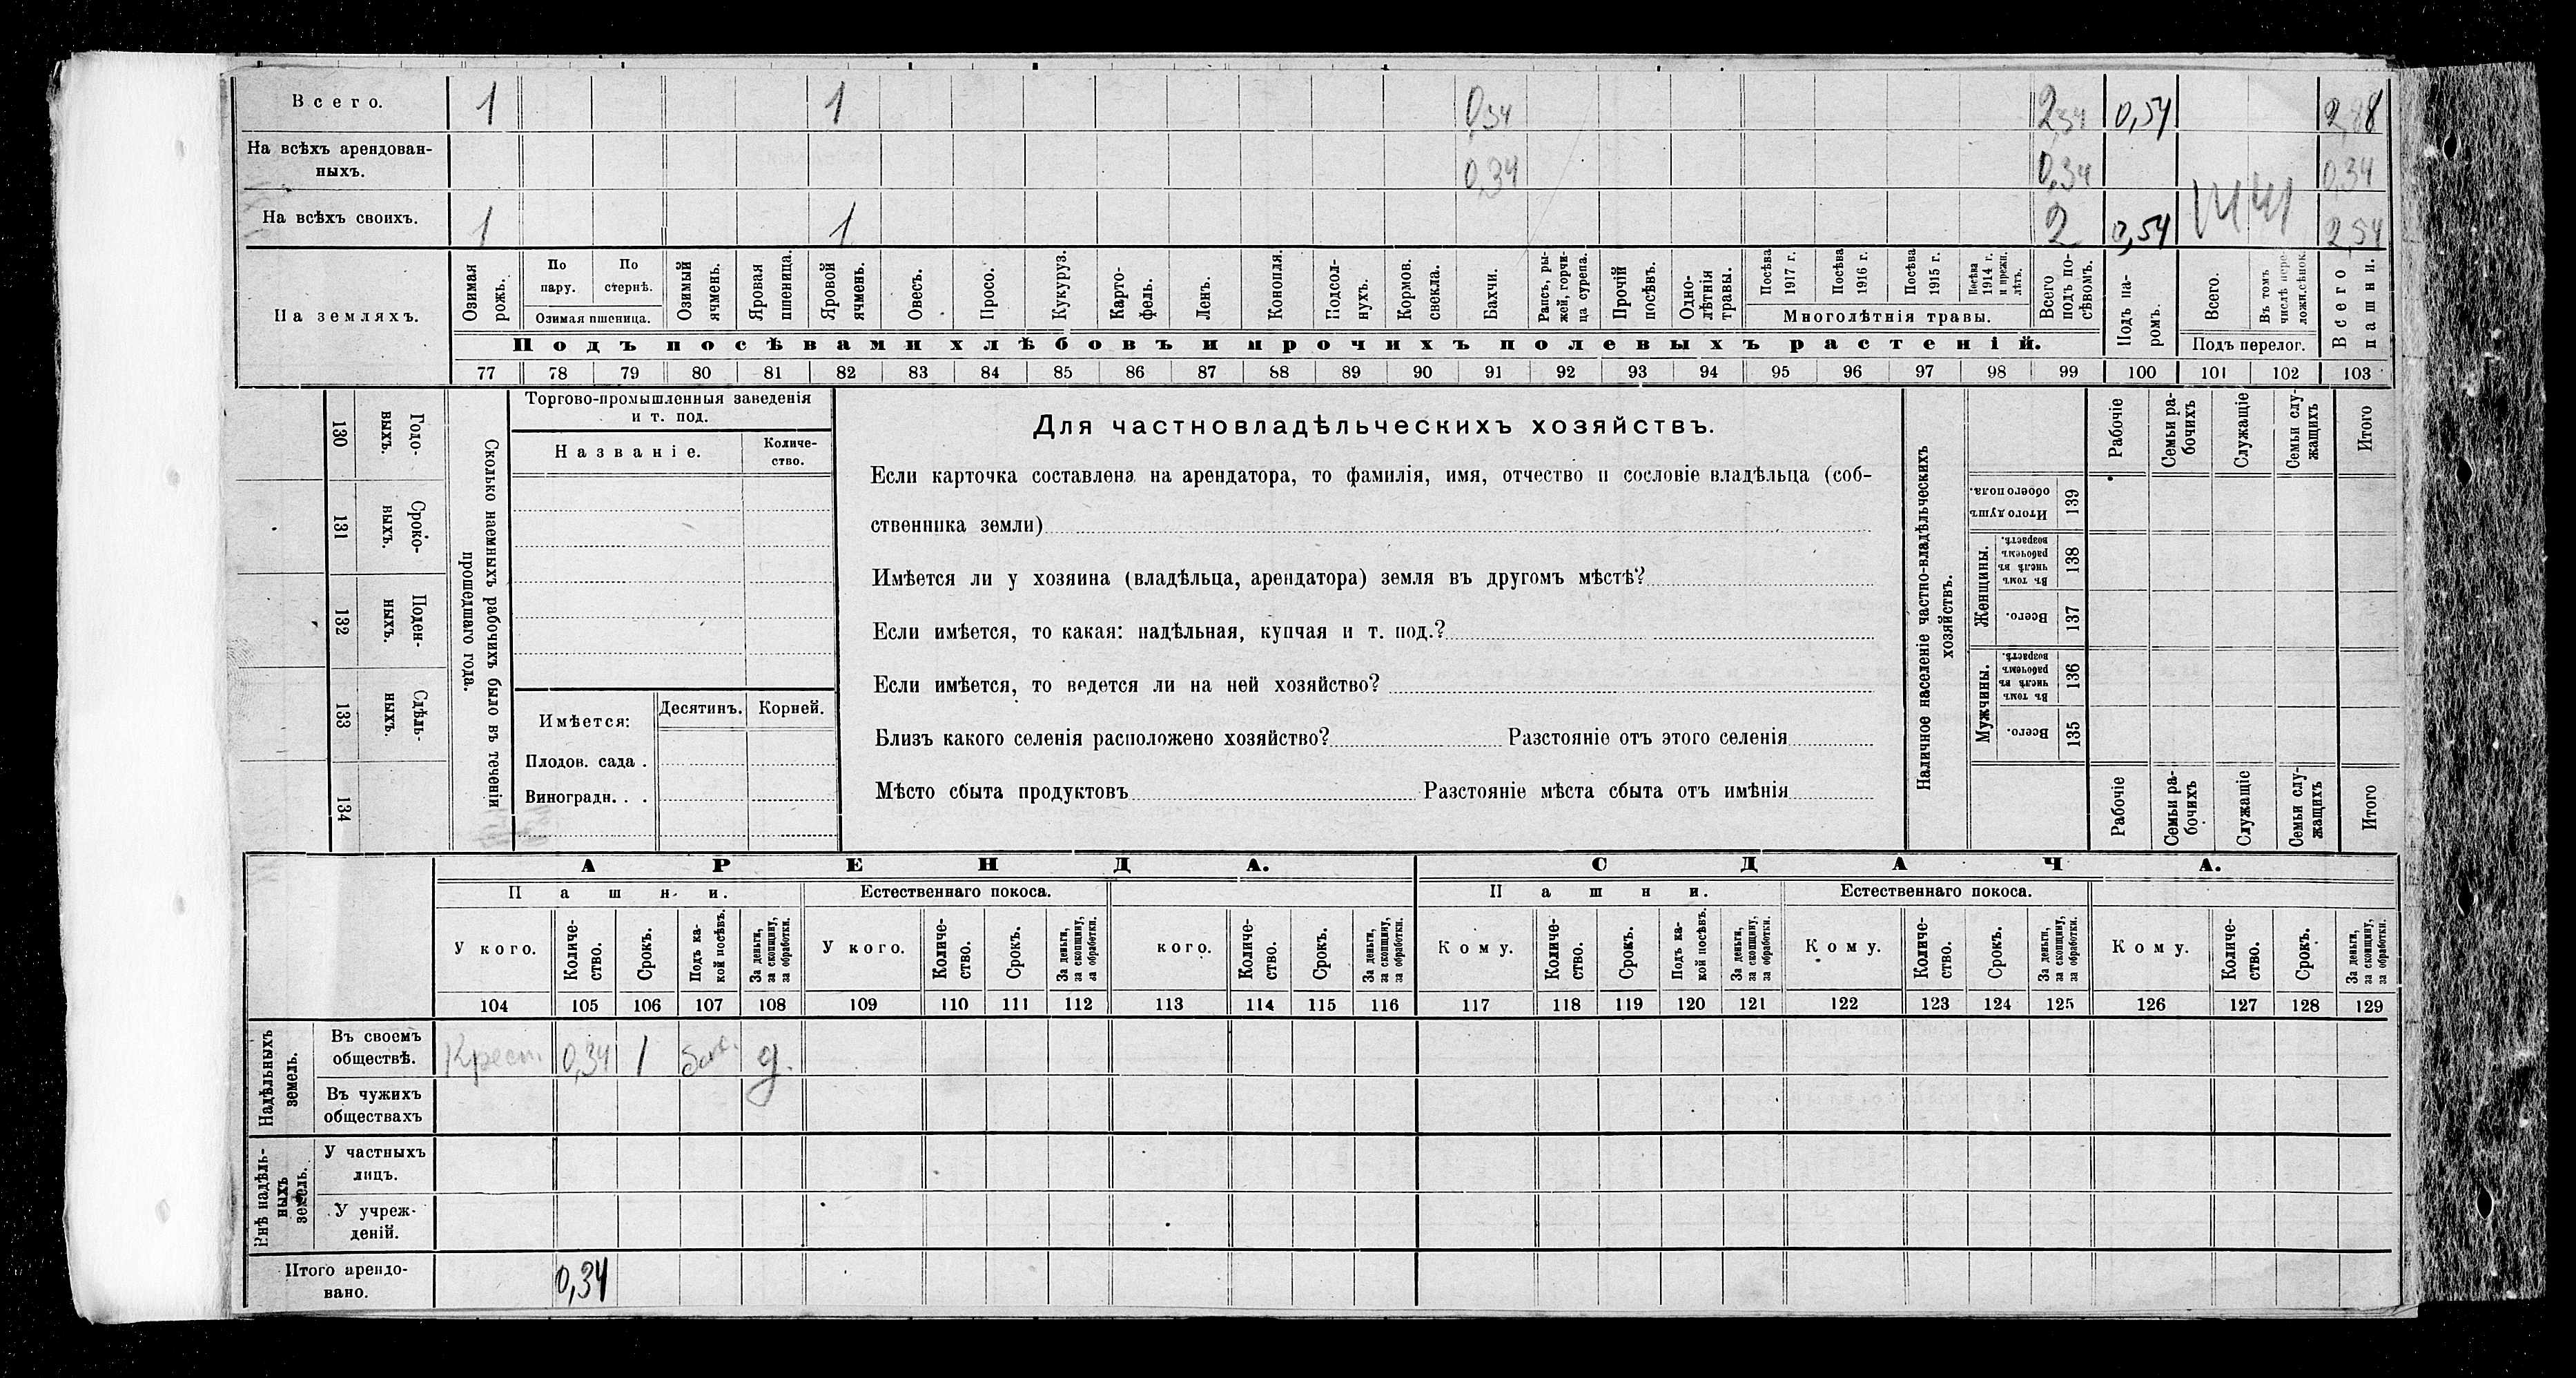 Всего. 1 1 0,34 2,34 0,54 2,88
На всѣхъ арендован-
ныхъ. 0,34 0,34 0,34
На всѣхъ своихъ. 1 1 2 0,54 2,54
На земляхъ.
Озимая рожь.
По пару.
По стернѣ.
Озимая пшеница.
Озимый ячмень.
Яровая пшеница.
Яровой ячмень.
Овесъ.
Просо.
Кукуруз.
Карто-
фель.
Ленъ.
Конопля.
Подсол-
нухъ.
Кормов. свекла.
Бахчи.
Рапсъ, ры-
жей, горчи-
ца сурепа.
Прочій посѣвъ.
Одно-
лѣтнія травы.
Посѣва 1917 г.
Посѣва 1916 г.
Посѣва 1915 г.
Посѣва 1914 г. и прежн. лѣтъ.
Многолѣтнія травы.
Всего подъ по-
сѣвомъ.
Подъ па-
ромъ.
Всего.
Въ томъ числѣ пере-
ложн. сѣнок.
Подъ перелог.
Всего пашни.
Подъ посѣвами хлѣбовъ и прочихъ полевыхъ растеній.
77 78 79 80 81 82 83 84 85 86 87 88 89 90 91 92 93 94 95 96 97 98 99 100 101 102 103
130 Годо-
выхъ.
131 Сроко-
ныхъ.
132 Поден-
ныхъ.
133 Сдѣль-
ныхъ.
134
Сколько наемныхъ рабочихъ было въ теченіи
прошедшаго года.
Торгово-промышленныя заведенія
и т. под.
Названіе.
Количе-
ство.
Имѣется: Десятинъ. Корней.
Плодов. сада .
Виноградн. . .
Для частновладѣльческихъ хозяйствъ.
Если карточка составлена на арендатора, то фамилія, имя, отчество и сословіе владѣльца (соб-
ственника земли)
Имѣется ли у хозяина (владѣльца, арендатора) земля въ другомъ мѣстѣ?
Если имѣется, то какая: надѣльная, купчая и т. под.?
Если имѣется, то ведется ли на ней хозяйство?
Близъ какого селенія расположено хозяйство? Разстояніе отъ этого селенія
Мѣсто сбыта продуктовъ Разстояніе мѣста сбыта отъ имѣнія
Наличное населеніе частно-владѣльческихъ
хозяйствъ.
Рабочіе
Семьи ра-
бочихъ
Служащіе
Семьи слу-
жащихъ
Итого
Итого душъ обоего пола. 139
Женщины.
Въ томъ числѣ въ рабочемъ возрастѣ. 138
Всего. 137
Мужчины.
Въ томъ числѣ въ рабочемъ возрастѣ. 136
Всего. 135
Рабочіе
Семьи ра-
бочихъ
Служащіе
Семьи слу-
жащихъ
Итого
АРЕНДА. СДАЧА.
Пашни. Естественнаго покоса. Пашни. Естественнаго покоса.
У кого.
Количе-
ство.
Срокъ.
Подъ ка-
кой посѣвъ.
За деньги,
за скопщину,
за обработки.
У кого.
Количе-
ство.
Срокъ.
За деньги,
за скопщину,
за обработки.
кого.
Количе-
ство.
Срокъ.
За деньги,
за скопщину,
за обработки.
Кому.
Количе-
ство.
Срокъ.
Подъ ка-
кой посѣвъ.
За деньги,
за скопщину,
за обработки.
Кому.
Количе-
ство.
Срокъ.
За деньги,
за скопщину,
за обработки.
Кому.
Количе-
ство.
Срокъ.
За деньги,
за скопщину,
за обработки.
104 105 106 107 108 109 110 111 112 113 114 115 116 117 118 119 120 121 122 123 124 125 126 127 128 129
Надѣльныхъ
земель.
Въ своемъ
обществѣ. Крест. 0,34 1 д.
Въ чужихъ
обществахъ
Внѣ надѣль-
ныхъ
земель.
У частныхъ
лицъ.
У учреж-
деній.
Итого арендо-
вано. 0,34